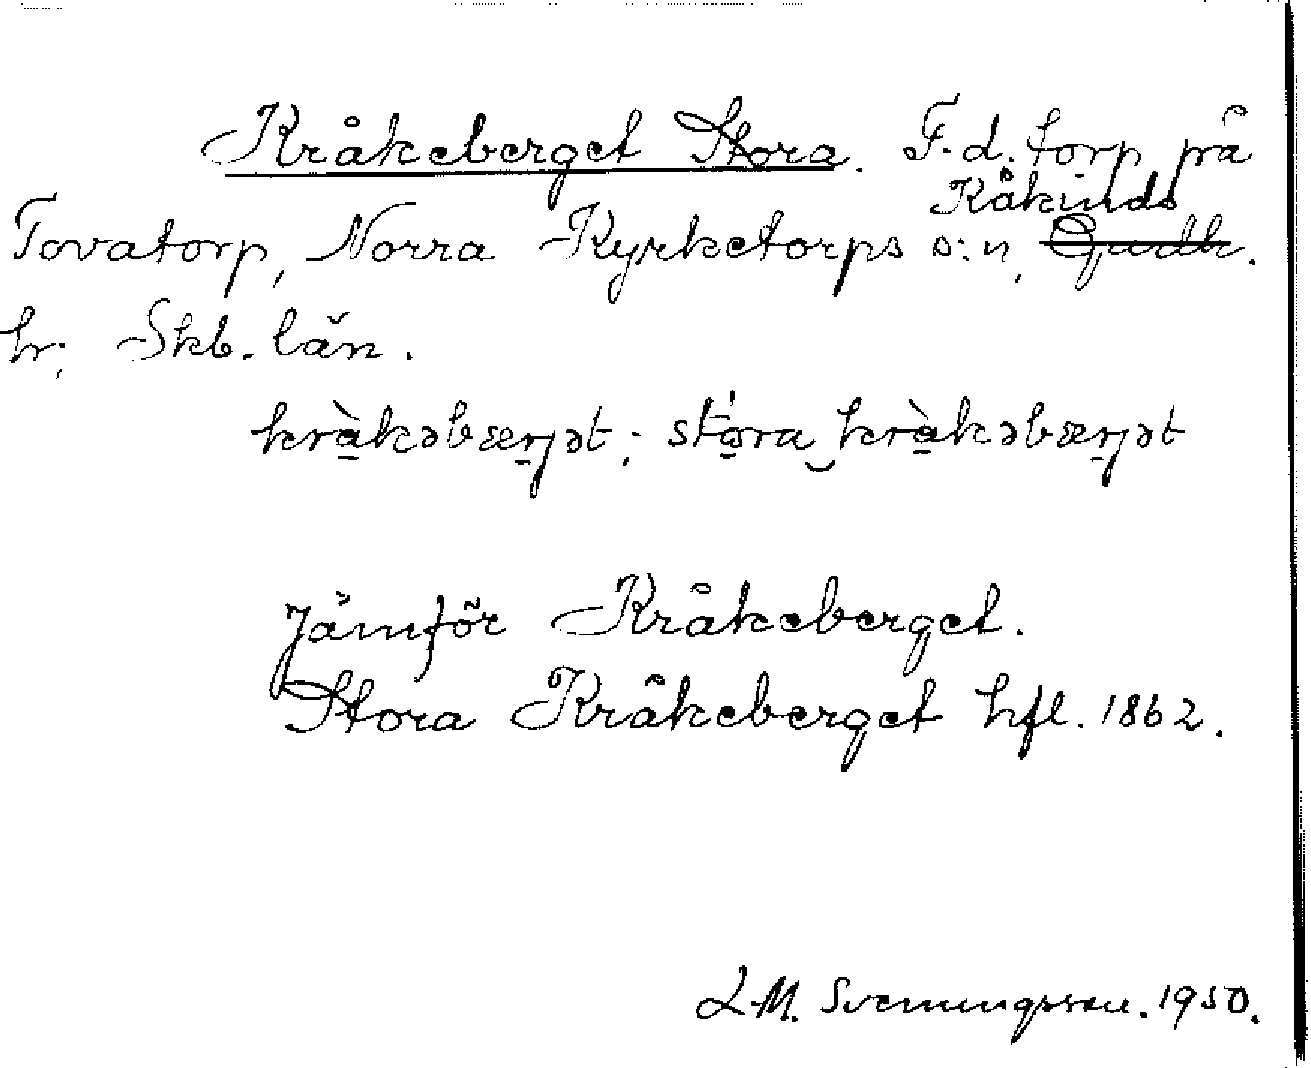 Kråkeberget Stora. F.d. torp på
Kåkinds
Tovatorp, Norra Kyrketorps s:n, Gudh.
hr; Skb. län.
kràkəbærjət; stóra kràkəbærjət
Jämför Kråkeberget.
Stora Kråkeberget hfl. 1862.
L.M. Svenungsson. 1950.